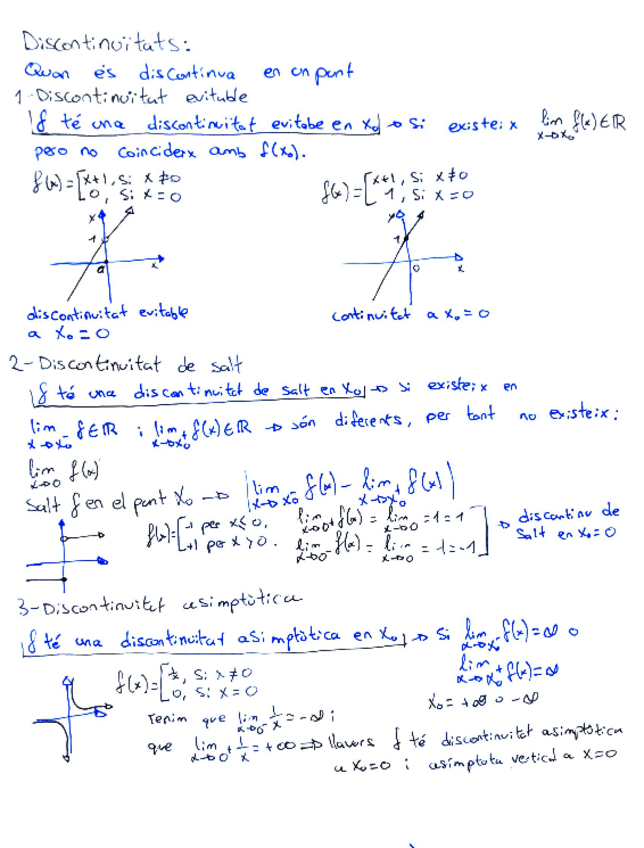 Discontinuïtats:
Quan és discontinva en un punt
1-Discontinuïtat evitable
f té una discontinuitat evitabe en x₀ → Si existeix lim x→x₀ f(x)∈ℝ
pero no coincideix amb f(x₀).
f(x)=[x+1, si x≠0
0, si x=0
f(x)=[x+1, si x≠0
1, si x=0
x
1
0
x
x
1
0
x
discontinuitat evitable
a x₀=0
continuitat a x₀=0
2-Discontinuitat de salt
f té una discontinuitat de salt en x₀ → si existeix en
lim x→x₀⁻ f∈ℝ i lim x→x₀⁺ f(x)∈ℝ → són diferents, per tant no existeix:
lim x→0 f(x)
Salt f en el punt x₀ → |lim x→x₀⁻ f(x) - lim x→x₀⁺ f(x)|
f(x)=[-1 per x≤0,
+1 per x>0.
lim x→0⁺ f(x) = lim x→0 =1=1
lim x→0⁻ f(x) = lim x→0 =-1=-1
→ discontinu de
salt en x₀=0
3-Discontinuitat asimptòtica
f té una discontinuitat asimptòtica en x₀ → Si lim x→x₀⁻ f(x)=∞ o
lim x→x₀⁺ f(x)=∞
x₀=+∞ o -∞
f(x)=[1/x, si x≠0
0, si x=0
Tenim que lim x→0⁻ 1/x=-∞ i
que lim x→0⁺ 1/x=+∞ ⇒ llavors f té discontinuitat asimptòtica
a x₀=0 i asímptota vertical a x=0